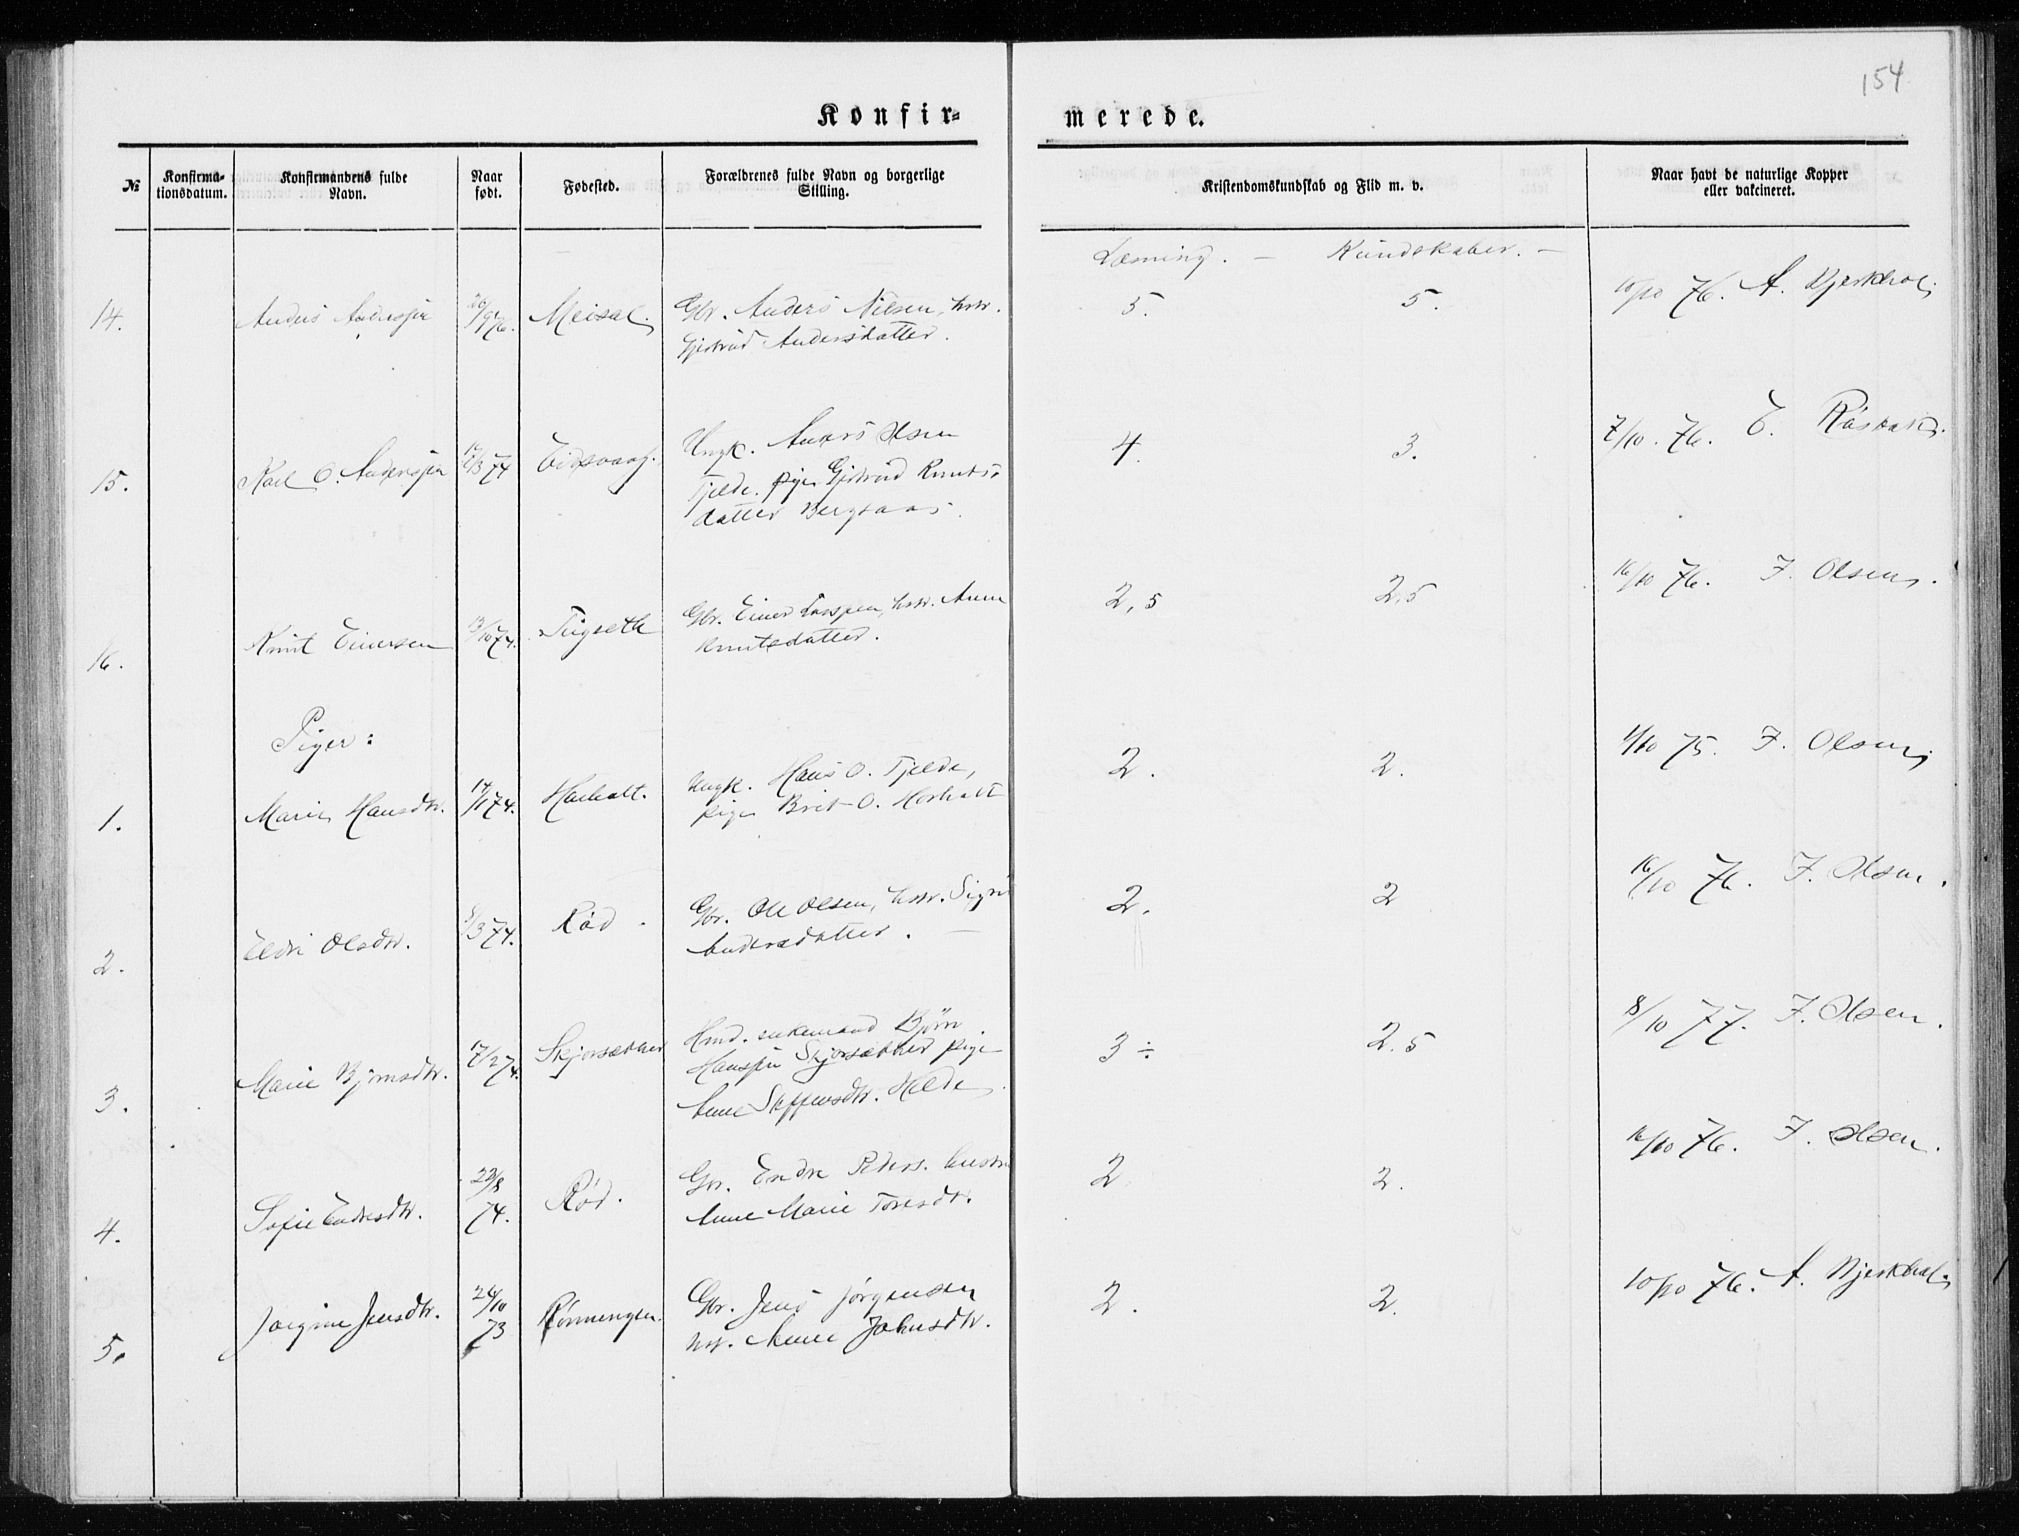 154
Konfir=
merede.
№
Konfirma-
tionsdatum.
Konfirmandens fulde
Navn.
Naar
født.
Fødested.
Forældrenes fulde Navn og borgerlige
Stilling.
Kristendomskundskab og Flid m. v.
Naar havt de naturlige Kopper
eller vakcineret.
Læsning. — Kundskaber. —
14.
Anders
26/9 76.
Meisal.
Gbr. Anders Nilsen, hstr.
Gjertrud Andersdatter.
5.
5.
10/10 76. A.
15.
O. Andersen
12/3 74
Eidsvaag.
Ungk. Anders Olsen
Tjelde. pige Gjertrud Knuts-
datter Bergsaas.
4.
3.
7/10. 76. E.
16.
Knut Einersen
13/10 74.
Tugseth
Gbr. Einer hstr. Anne
Knutsdatter.
2,5
2,5
16/10 76. F. Olsen.
Piger:
1.
Marie Hansdtr.
17/1 74.
Ungk. Hans O. Tjelde,
pige Brit O.
2.
2.
1/10 75. F. Olsen
2.
Eldri Olsdtr.
9/3 74.
Rød.
Gbr. Ole Olsen, hstr. Sigri
Andersdatter. —
2.
2
16/10 76. F. Olsen.
3.
Marie Bjørnsdtr.
17/2 74.
Skjorsætter
Hmd. enkemand Bjørn
Skjorsætter pige
Anne Steffensdtr. Hilde
3÷
2.5
8/10 77. F. Olsen.
4.
Sofie Endresdtr.
23/8
74.
Rød.
Gbr. Endre Peders. hustru
Anne Marie Toresdtr.
2
2.
16/10 76. F. Olsen.
5.
Jørgine Jensdtr.
24/10
73
Rønningen.
Gbr. Jens Jørgensen
hst. Anne Johnsdtr.
2.
2.
10/10 76. A.